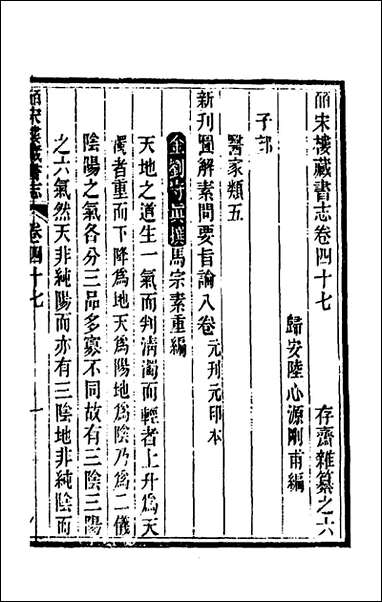 皕宋樓藏書志卷四十七　存齋雜纂之六
歸安陸心源剛甫編
子部
醫家類五
新刊圖解素問要旨論八卷　元刊元印本
金劉守真撰馬宗素重編
天地之道生一氣而判清濁而輕者上升爲天
濁者重而下降爲地天爲陽地爲陰乃爲二儀
陰陽之氣各分三品多寡不同故有三陰三陽
之六氣然天非純陽而亦有三陰地非純陰而
皕宋樓藏書志　卷四十七　一